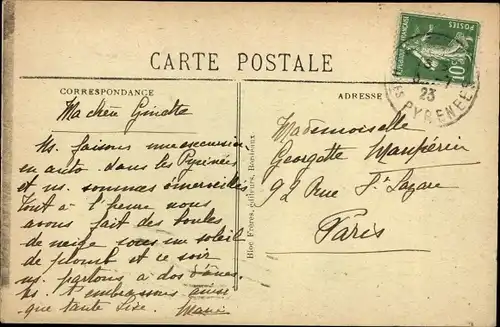 CARTE POSTALE
CORRESPONDANCE
ADRESSE
POSTES
10
23
PYRENEES
Ma chère Ginette
Ns. faisons une excursion
en auto dans les Pyrénées
et ns. sommes émerveillés
Tout à l'heure nous
avons fait des boules
de neige sous un soleil
de plomb et ce soir
ns. partons à dos d'ânes.
Ns. t'embrassons ainsi
que tante Lise.
Bloc Frères, éditeurs, Bordeaux
Mademoiselle
Georgette
92 Rue St. Lazare
Paris